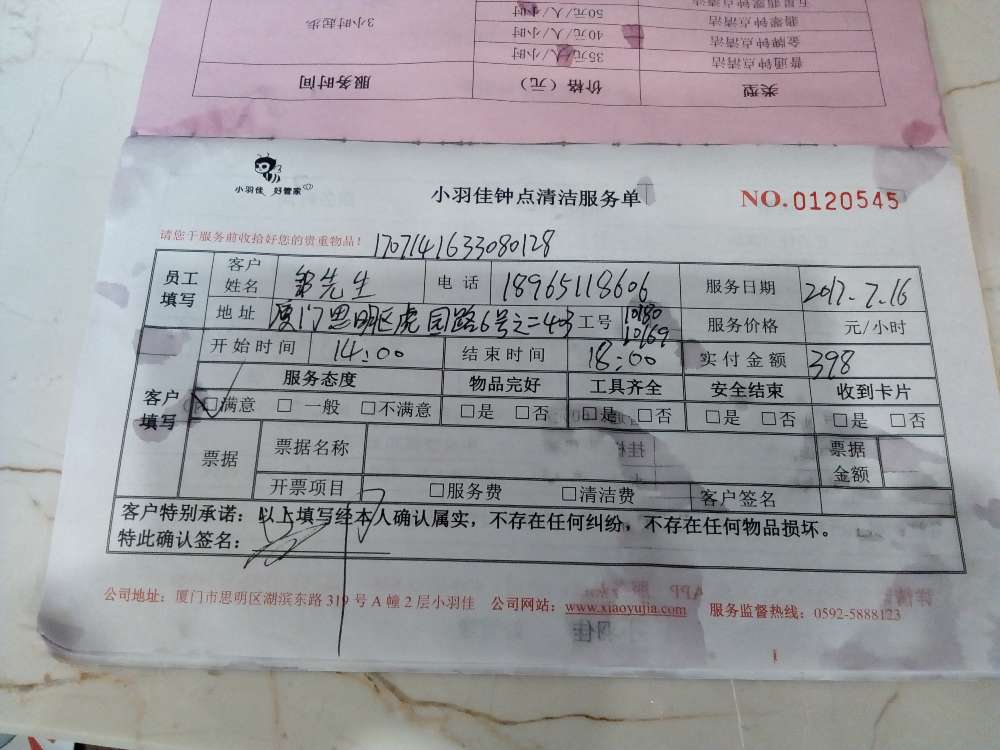 石夷翡翠钟点清洁 50元/人/小时
翡翠钟点清洁 40元/人/小时
金牌钟点清洁
普通钟点清洁 35元/人/小时
3小时起步
类型 价格（元） 服务时间
小羽佳 好管家
小羽佳钟点清洁服务单
NO.0120545
请您于服务前收拾好您的贵重物品！ 1707141633080128
员工填写 客户姓名 先生 电话 18965118606 服务日期 2017.7.16
地址 厦门思明区虎园路6号之二4号 工号 10180 10169 服务价格 元/小时
开始时间 14:00 结束时间 18:00 实付金额 398
客户填写 服务态度 物品完好 工具齐全 安全结束 收到卡片
□满意 □一般 □不满意 □是 □否 □是 □否 □是 □否 □是 □否
票据 票据名称 票据金额
开票项目 □服务费 □清洁费 客户签名
客户特别承诺：以上填写经本人确认属实，不存在任何纠纷，不存在任何物品损坏。
特此确认签名：
公司地址：厦门市思明区湖滨东路319号A幢2层小羽佳 公司网站：www.xiaoyujia.com 服务监督热线：0592-5888123